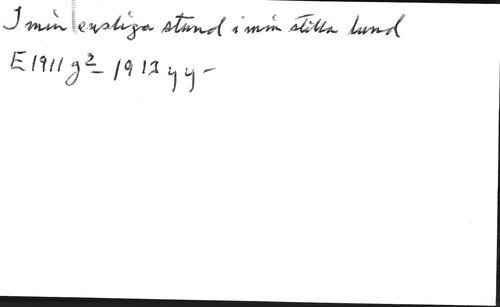 I min ensliga stund i min stilla lund
E 1911 g² - 1913 y y -